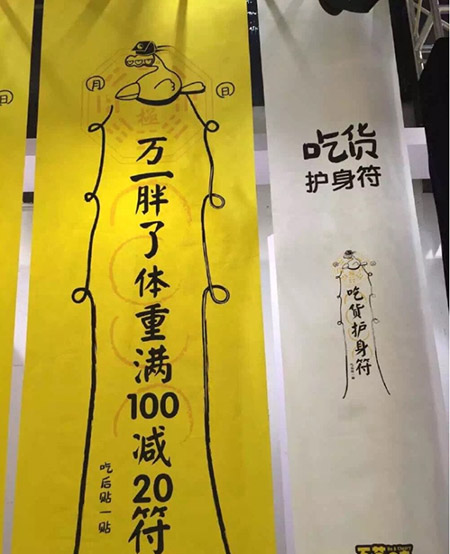 日
月
日
極
万一胖了体重满100减20符
吃后贴一贴
吃货
护身符
吃货护身符